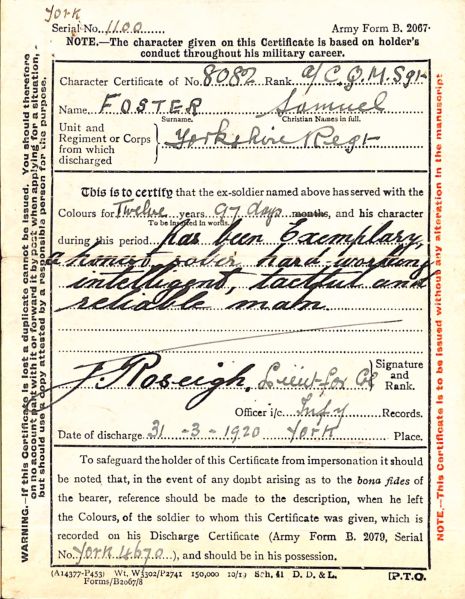 York
Serial No. 1100 Army Form B. 2067.
NOTE.—The character given on this Certificate is based on holder's
conduct throughout his military career.
Character Certificate of No. 8082 Rank A/C.Q.M.Sgt
Name FOSTER Samuel
Surname. Christian Names in full.
Unit and
Regiment or Corps
from which
discharged
Yorkshire Regt
This is to certify that the ex-soldier named above has served with the
Colours for Twelve years 97 days months, and his character
To be inserted in words.
during this period has been Exemplary,
a honest, sober, hard-working
intelligent, tactful and
reliable man.
Signature
and
Rank.
Officer i/c Infy Records.
Date of discharge 31-3-1920 York Place.
To safeguard the holder of this Certificate from impersonation it should
be noted that, in the event of any doubt arising as to the bona fides of
the bearer, reference should be made to the description, when he left
the Colours, of the soldier to whom this Certificate was given, which is
recorded on his Discharge Certificate (Army Form B. 2079, Serial
No. York 4670), and should be in his possession.
(A14377-P453) Wt. W3302/P2741 150,000 10/19 Sch. 41 D. D. & L.
Forms/B2067/8
[P.T.O.
WARNING.—If this Certificate is lost a duplicate cannot be issued. You should therefore
on no account part with it or forward it by post when applying for a situation,
but should use a copy attested by a responsible person for the purpose.
NOTE.—This Certificate is to be issued without any alteration in the manuscript